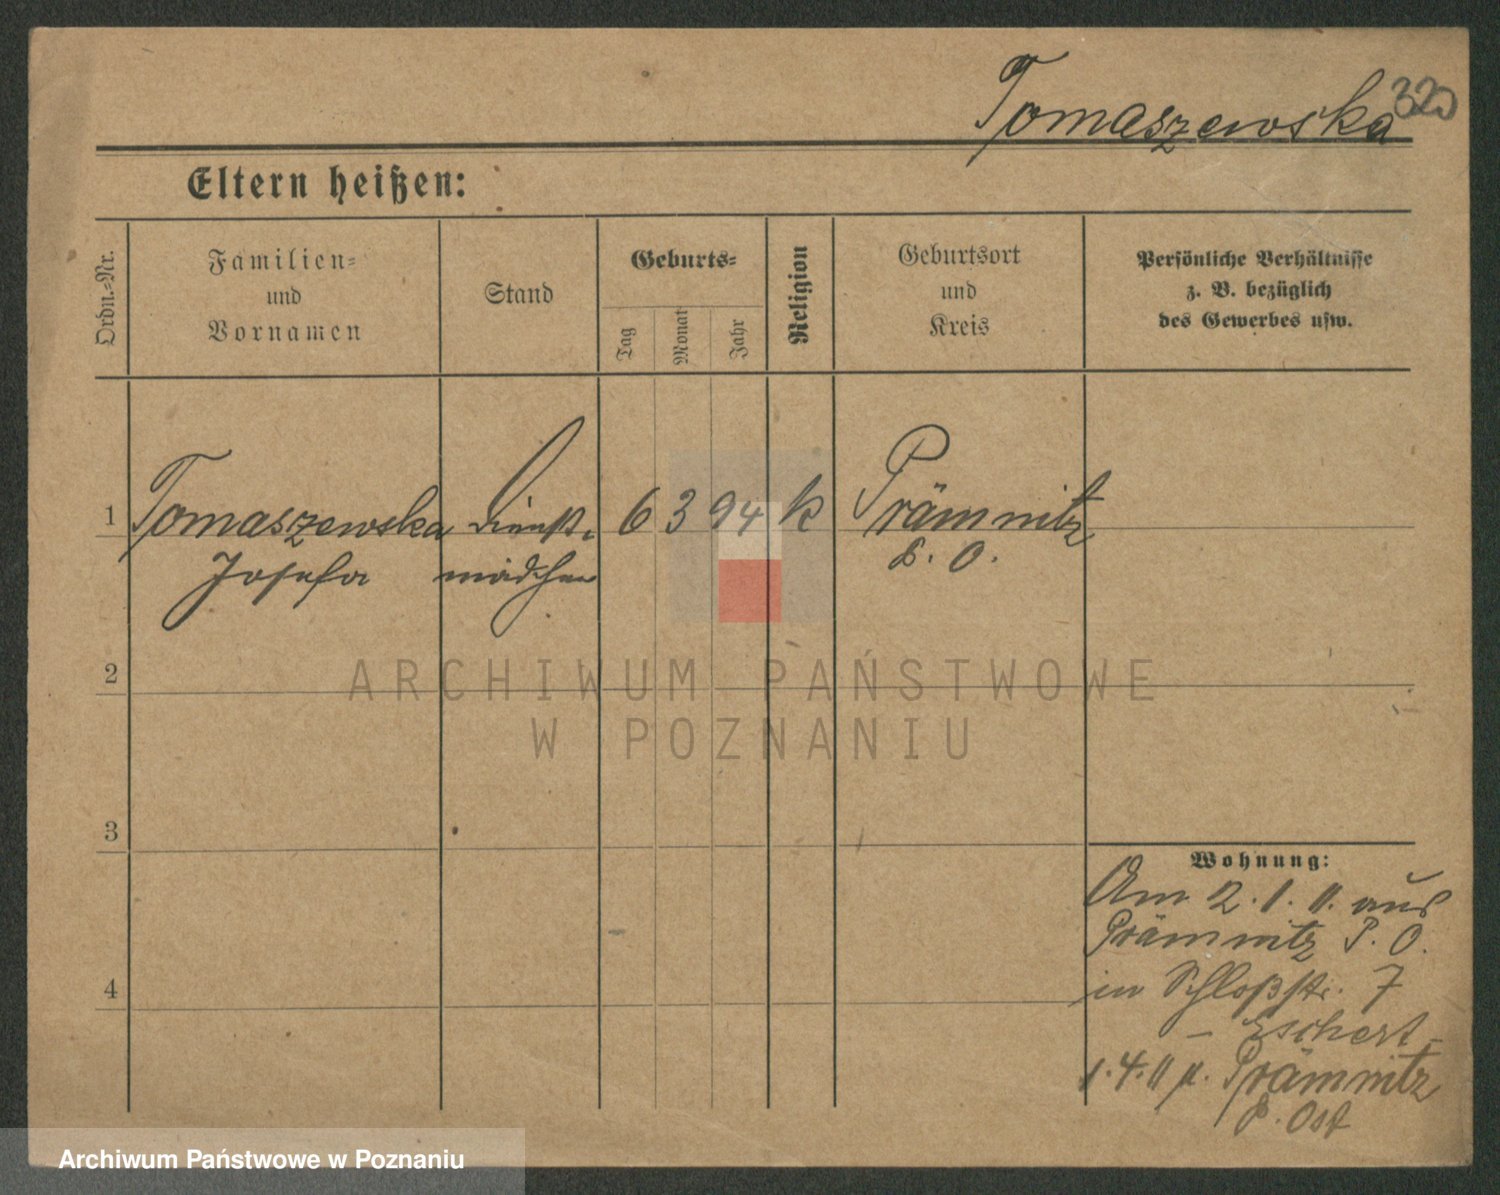 Tomaszewska 320
Eltern heißen:
Ordn.-Nr.
Familien-
und
Vornamen
Stand
Geburts-
Tag
Monat
Jahr
Religion
Geburtsort
und
Kreis
Persönliche Verhältnisse
z. B. bezüglich
des Gewerbes usw.
1 Tomaszewska Dienst- 6 3 94 k Prämnitz
Josefa mädchen P. O.
2
ARCHIWUM PAŃSTWOWE
W POZNANIU
3
Wohnung:
Am 2.1.11. aus
Prämnitz P. O.
in Schloßstr. 7
4
- Eschert -
1.4.11 n. Prämnitz
P. Ost
Archiwum Państwowe w Poznaniu